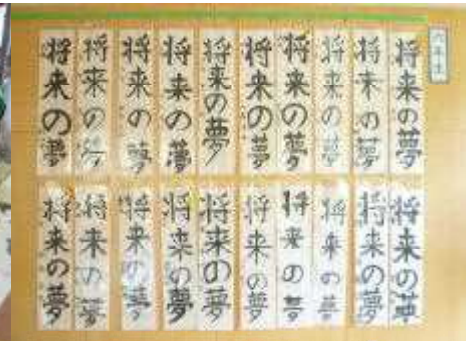 将来の夢
将来の夢
将来の夢
将来の夢
将来の夢
将来の夢
将来の夢
将来の夢
将来の夢
将来の夢
将来の夢
将来の夢
将来の夢
将来の夢
将来の夢
将来の夢
将来の夢
将来の夢
将来の夢
将来の夢